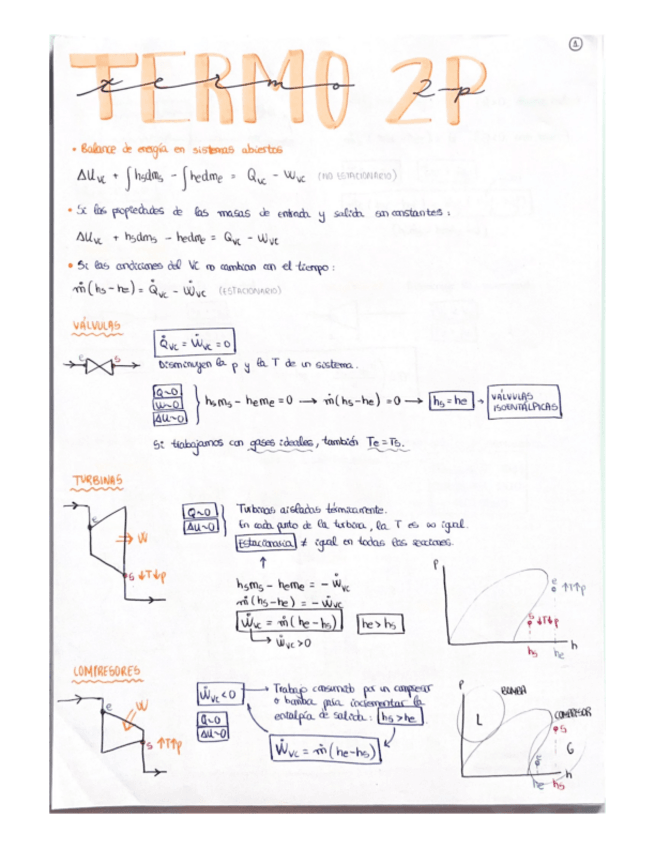 1
TERMO 2P
termo 2-p
• Balance de energía en sistemas abiertos
ΔU_VC + ∫hsdms - ∫hedme = Q_VC - W_VC (NO ESTACIONARIO)
• Si las propiedades de las masas de entrada y salida son constantes:
ΔU_VC + hsdms - hedme = Q_VC - W_VC
• Si las condiciones del VC no cambian con el tiempo:
ṁ(hs-he) = Q̇_VC - Ẇ_VC (ESTACIONARIO)
VÁLVULAS
e s
Q̇_VC = Ẇ_VC = 0
Disminuyen la p y la T de un sistema.
Q~0
W~0
ΔU~0
hsms - heme = 0 → ṁ(hs-he) = 0 → hs = he → VÁLVULAS ISOENTÁLPICAS
Si trabajamos con gases ideales, también Te = Ts.
TURBINAS
e
W
s ↓T↓p
Q~0
ΔU~0
Turbinas aisladas térmicamente.
En cada punto de la turbina, la T es ∞ igual.
Estacionaria ≠ igual en todas las secciones.
↑
hsms - heme = - Ẇ_VC
ṁ(hs-he) = - Ẇ_VC
Ẇ_VC = ṁ(he-hs) he > hs
Ẇ_VC > 0
P
e ↑T↑p
s ↓T↓p
hs he h
COMPRESORES
e W
s ↑T↑p
Ẇ_VC < 0
Q~0
ΔU~0
Trabajo consumido por un compresor
o bomba para incrementar la
entalpía de salida: hs > he
Ẇ_VC = ṁ(he-hs)
P
BOMBA
L
COMPRESOR
s
G
e
he hs h